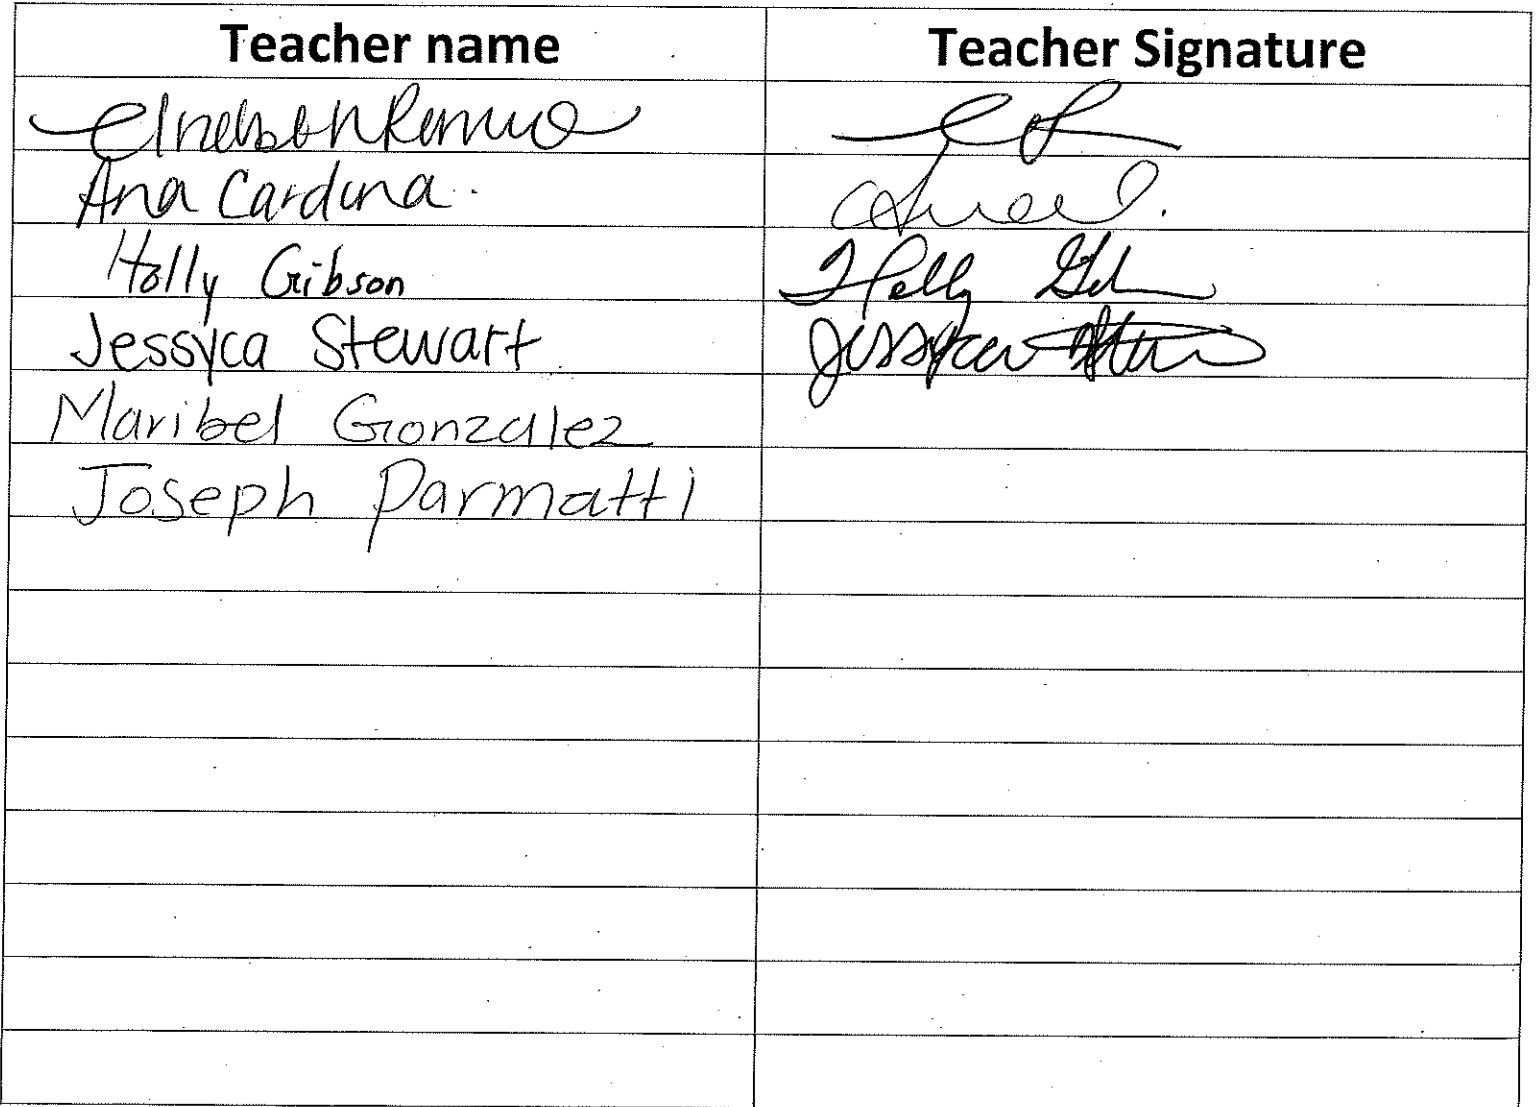 Teacher name Teacher Signature
Ana Cardona
Holly Gibson Holly
Jessyca Stewart Jessyca
Maribel Gonzalez
Joseph Parmatti